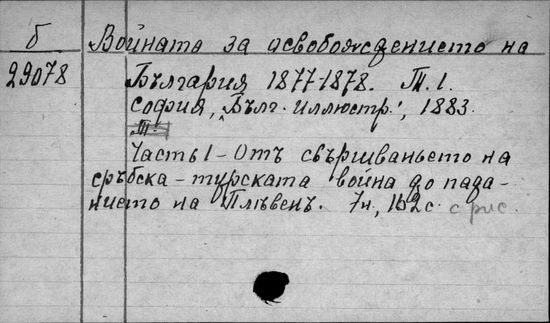 б
29078
Войната за освобождението на
България 1877-1878. Т. 1.
София, „Бълг. иллюстр.“, 1883.
Часть I – Отъ свършваньето на
сръбска-турската война до пада-
нието на Плѣвенъ. 7н., 162 с. с рис.